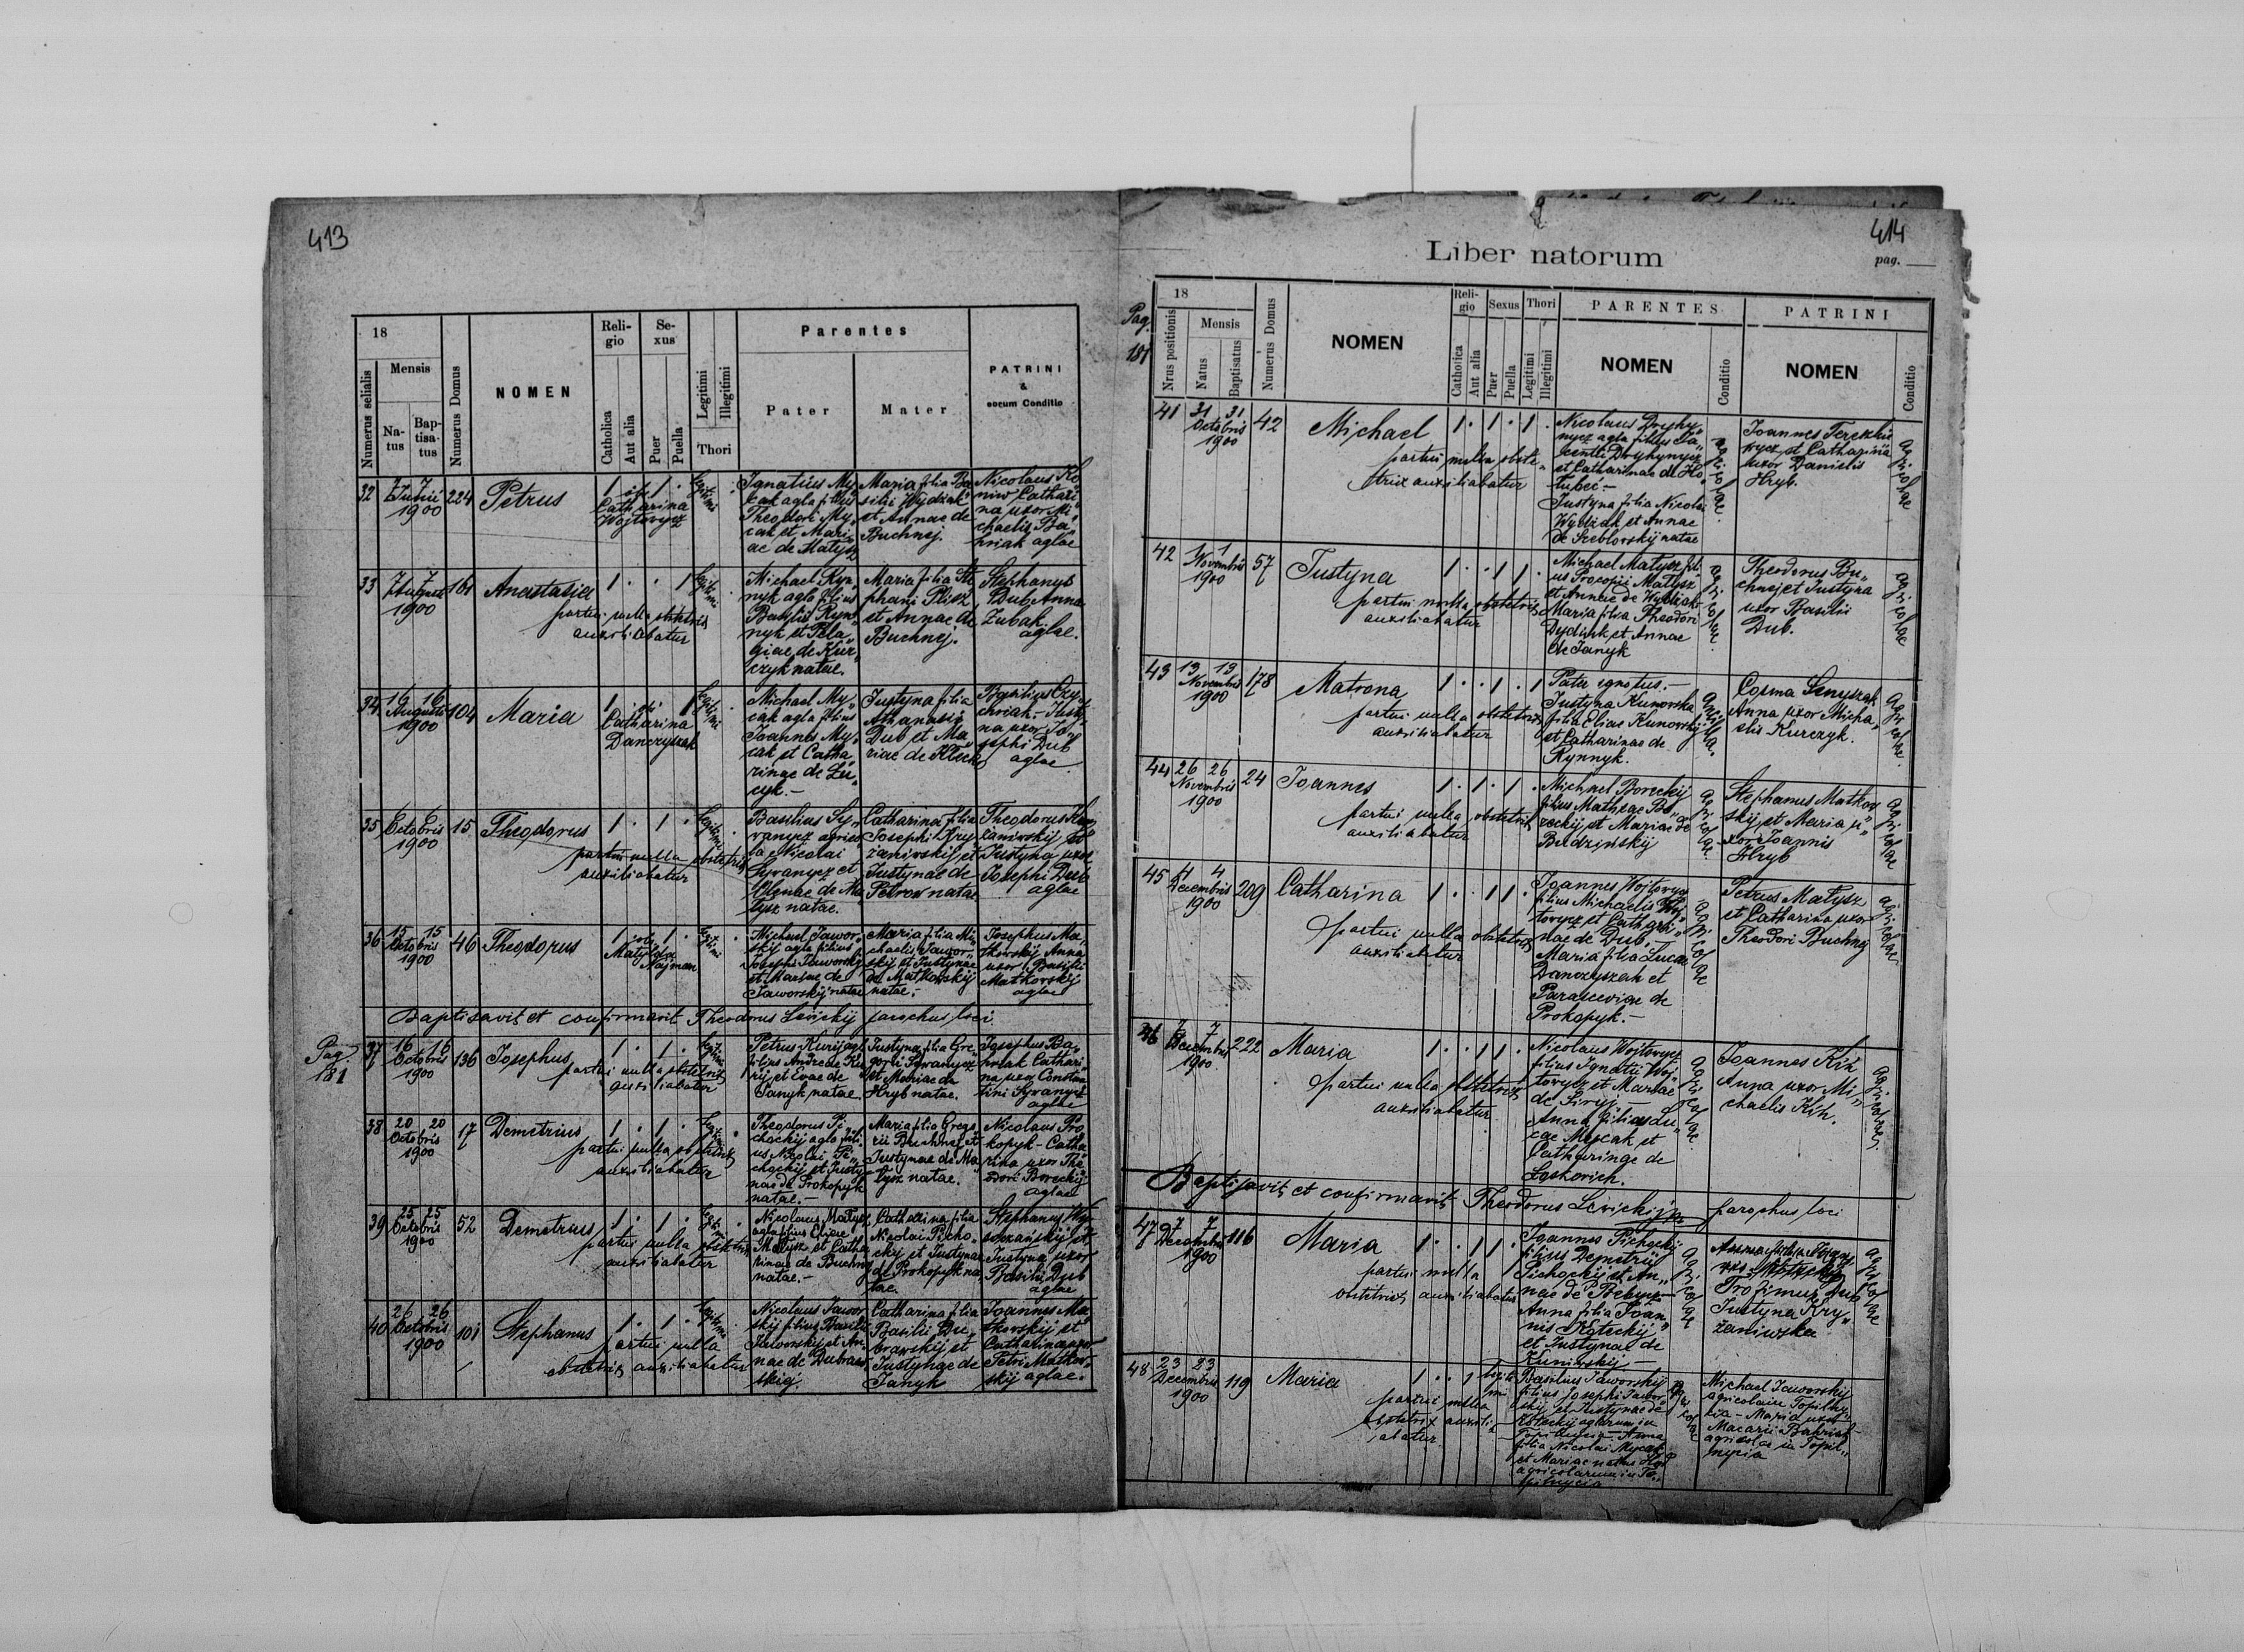 413
18
Mensis
Numerus selialis
Na-
tus
Bap-
tisa-
tus
Numerus Domus
NOMEN
Reli-
gio
Catholica
Aut alia
Se-
xus
Puer
Puella
Legitimi
Illegitimi
Thori
Parentes
Pater
Mater
PATRINI
&
eorum Conditio
32
7 7
Junii
1900
224
Petrus
1 . 1 .
obst
Catharina
Wojtovycz
Ignatius My„
cak agla filius
Theodori My„
cak et Mari„
ae de Matysz
Maria filia Ba
silii Wydziak
et Annae de
Buchnej.
Nicolaus
Cathari
na uxor Mi
chaelis Ba
hniak aglae
33
7 7
Augusti
1900
161
Anastasia
1 . . 1
Legitimi
partui nulla obstetrix
auxiliabatur
Michael Ryn„
nyk agla filius
Basilii Ryn„
nyk et Pela„
giae de Kur„
czyk natae.
Maria filia Ste
phani Plisz
et Annae de
Buchnej.
Stephanus
Dub Anna
Zubak
aglae.
34
16 16
Augusti
1900
104
Maria
1 . . 1
Legitimi
Catharina
Danczyszak
Michael My„
cak agla filius
Joannis My„
cak et Catha„
rinae de Lu„
cyk.-
Justyna filia
Athanasii
Dub et Ma„
riae de
Basilius Czy
chriak.- Justy„
na uxor Jo„
sephi Dub
aglae
35
6 6
Octobris
1900
15
Theodorus
1 . 1 .
Legitimi
partui nulla obstetrix
auxiliabatur
Basilius Sy„
vanycz agrico
la Nicolai
Syvanycz et
Helenae de Ma
tysz natae.
Catharina filia
Josephi Kry„
zanivskij et
Justynae de
Petrow natae
Theodorus
Justyna uxor
Josephi Dub
aglae
36
15 15
Octobris
1900
46
Theodorus
1 . 1 .
obst
Matylda
Najman
Michael Jawor„
skij agla filius
Josephi Jaworskij
et Mariae de
Jaworskij natae
Maria filia Mi„
chaelis Jawor„
skij et Justynae
de Matkowskij
natae.-
Josephus Ma„
tkovskij Anna
uxor Basilii
Matkovskij
aglae
Baptisavit et confirmavit Theodorus Levickij parochus loci.
Pag.
181
37
16 16
Octobris
1900
136
Josephus
1 . 1 .
partui nulla obstetrix
auxiliabatur
Petrus Kurij agla
filius Andreae Ku
rij et Evae de
Janyk natae.
Justyna filia Gre„
gorii Syvanycz
et Mariae de
Hryb natae.
Josephus Ba„
hniak Cathari„
na uxor Constan
tini Syvanycz
aglae
38
20 20
Octobris
1900
17
Demetrius
1 . 1 .
partui nulla obstetrix
auxiliabatur
Theodorus Pi„
chockij agla fili
us Nicolai Pi„
chockij et Justy
nae de Prokopyk
natae.-
Maria filia Grego
rii Buchnej et
Justynae de Ma
tysz natae.
Nicolaus Pro
kopyk - Catha„
rina uxor The„
odori Boreckij
aglae
39
25 25
Octobris
1900
52
Demetrius
1 . 1 .
partui nulla obstetrix
auxiliabatur
Nicolaus Matysz
agla filius Eliae
Matysz et Catha
rinae de Buchnej
natae.-
Catharina filia
Nicolai Picho„
ckij et Justynae
de Prokopyk na
tae.
Stephanus
Justyna uxor
Basilii Dub
aglae
40
26 26
Octobris
1900
101
Stephanus
1 . 1 .
partui nulla
obstetrix auxiliabatur
Nicolaus Jawor
skij filius Basilii
Jaworskij et An„
nae de Dubraw„
skij.
Catharina filia
Basilii Du„
brawskij et
Justynae de
Janyk
Joannes Ma„
tkovskij et
Catharina uxor
Petri Matkov„
skij aglae.
414
Liber natorum
pag.
Pag.
181
18
Nrus positionis
Mensis
Natus
Baptisatus
Numerus Domus
NOMEN
Reli-
gio
Catholica
Aut alia
Sexus
Puer
Puella
Thori
Legitimi
Illegitimi
PARENTES
NOMEN
Conditio
PATRINI
NOMEN
Conditio
41
31 31
Octobris
1900
42
Michael
1 . 1 . 1 .
partui nulla obste„
trix auxiliabatur
Nicolaus Dryhy„
nycz agla filius Ja„
centii Dryhynycz
et Catharinae de Ho„
lubec.-
Justyna filia Nicolai
Wydziak et Annae
de Szeblovskij natae
agricolae.
Joannes
et Catharina
uxor Danielis
Hryb.
agricolae
42
1 1
Novembris
1900
57
Justyna
1 . . 1 1 .
partui nulla obstetrix
auxiliabatur
Michael Matysz fili
us Procopii Matysz
et Annae de Wydziak
Maria filia Theodori
Dydink et Annae
de Janyk
agricolae.
Theodorus Bu„
chnej et Justyna
uxor Basilii
Dub.
agricolae
43
13 13
Novembris
1900
178
Matrona
1 . . 1 . 1
partui nulla obstetrix
auxiliabatur
Pater ignotus.-
Justyna Kunovska
filia Eliae Kunovskij
et Catharinae de
Rynnyk.
agricola.
Cosma Senyszak
Anna uxor Micha„
elis Kurczyk.
agricolae
44
26 26
Novembris
1900
24
Joannes
1 . 1 . 1 .
partui nulla obstetrix
auxiliabatur
Michael Boreckij
filius Matheae Bo„
reckij et Mariae de
Budzinskij
agricolae.
Stephanus Matkov
skij et Maria u„
xor Joannis
Hryb
agricolae
45
4 4
Decembris
1900
209
Catharina
1 . . 1 1 .
partui nulla obstetrix
auxiliabatur
Joannes Wojtovycz
filius Michaelis Woj„
tovycz et Cathari„
nae de Dub.-
Maria filia Lucae
Danczyszak et
Parasceviae de
Prokopyk.-
agricolae
Petrus Matysz
et Catharina uxor
Theodori Buchnej
agricolae
46
7 7
Decembris
1900
222
Maria
1 . . 1 1 .
partui nulla obstetrix
auxiliabatur
Nicolaus Wojtovycz
filius Ignatii Woj„
tovycz et Mariae
de Siryj.-
Anna filia Lu„
cae Mycak et
Catharinae de
Loskovich.
agricolae
Joannes Kih
Anna uxor Mi„
chaelis Kih.
agricolae.
Baptisavit et confirmavit Theodorus Levickij parochus loci
47
7 7
Decembris
1900
116
Maria
1 . . 1 1 .
partui nulla
obstetrix auxiliabatur
Joannes Pichockij
filius Demetrii
Pichockij et An„
nae de
Anna filia Joan„
nis Koteckij
et Justynae de
Kunivskij.-
agricolae
Trofimus Dub
Justyna Kry„
zanivska
agricolae
48
23 23
Decembris
1900
119
Maria
1 . . 1
legiti
mi
partui nulla
obstetrix auxili„
abatur
Basilius Jaworskij
filius Josephi Jawor„
skij et Justynae de
Koteckij aglarum in
Topilnycia - Anna
filia Nicolai Mycak
et Mariae natae
agricolarum in To„
pilnycia
agricolae
Michael Jaworskij
agricola in Topilny„
cia - Maria uxor
Macarii Bahniak
agricolae in Topil„
nycia